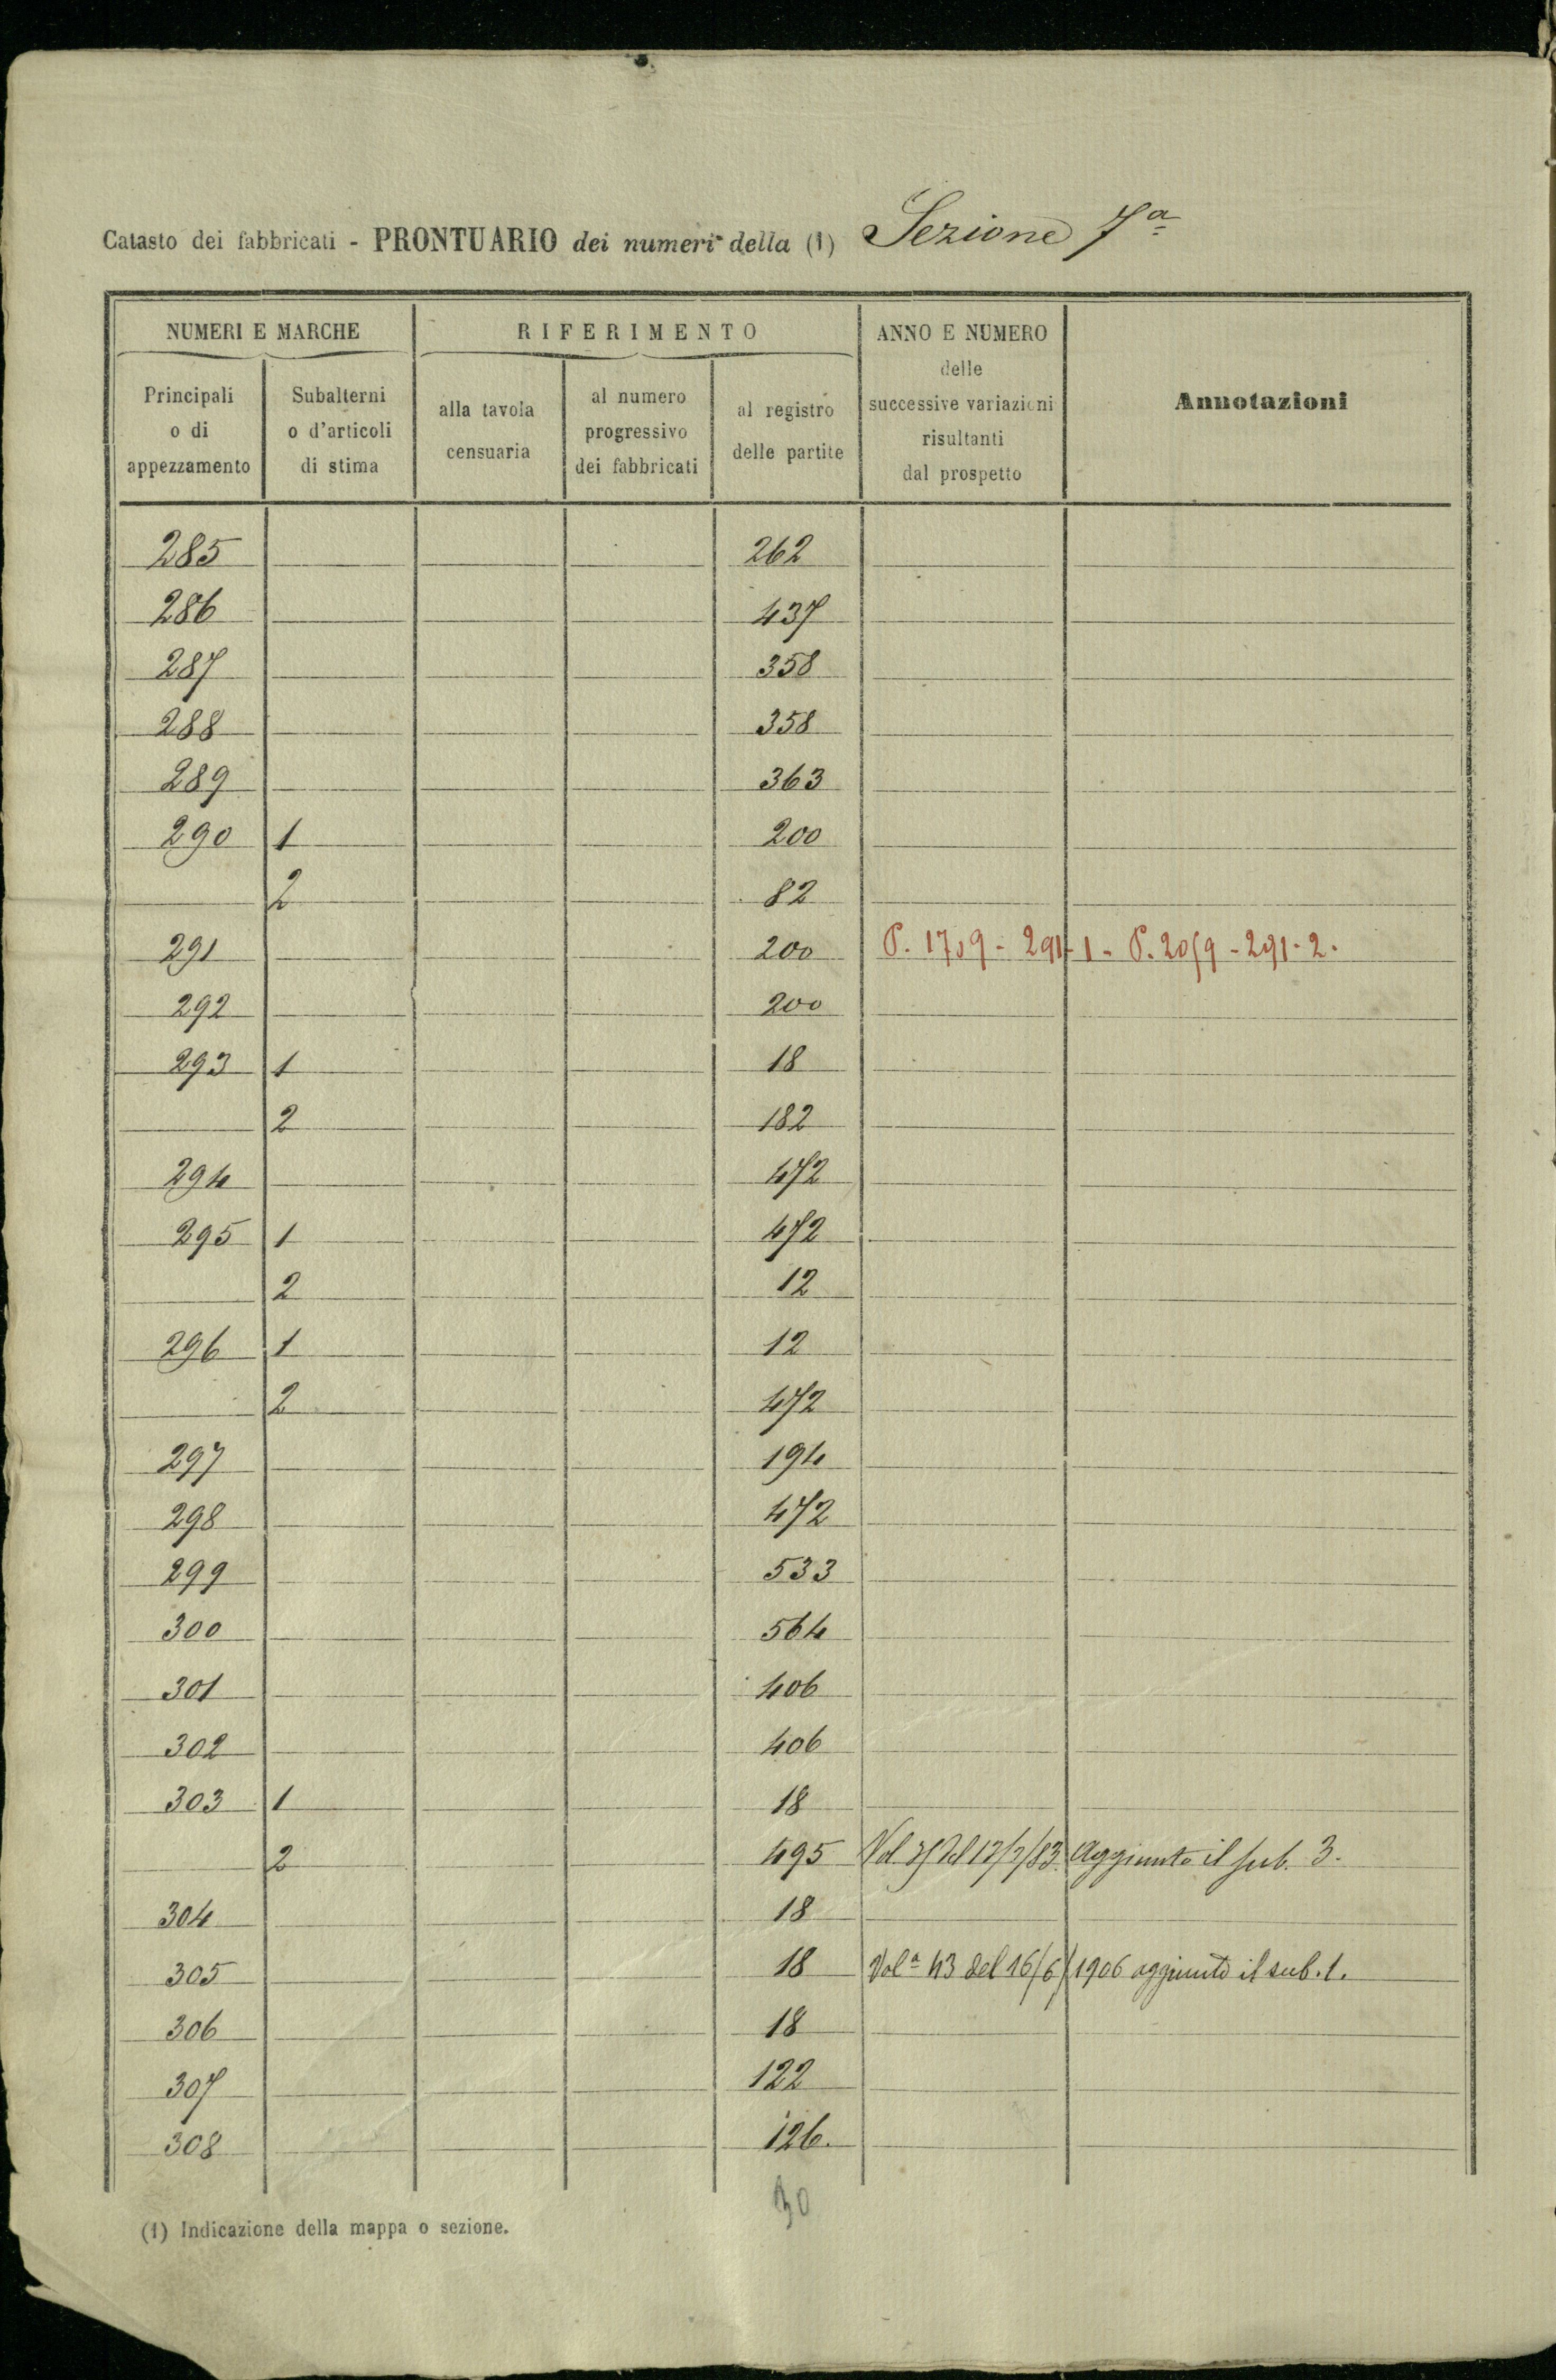 Catasto dei fabbricati - PRONTUARIO dei numeri della (1) Sezione 7ª
NUMERI E MARCHE
RIFERIMENTO
ANNO E NUMERO
delle
successive variazioni
risultanti
dal prospetto
Annotazioni
Principali
o di
appezzamento
Subalterni
o d'articoli
di stima
alla tavola
censuaria
al numero
progressivo
dei fabbricati
al registro
delle partite
285 262
286 437
287 358
288 358
289 363
290 1 200
2 82
291 200 P. - 291-1 - P. - 291-2.
292 200
293 1 18
2 182
294 472
295 1 472
2 12
296 1 12
2 472
297 194
298 472
299 533
300 564
301 406
302 406
303 1 18
2 495 Aggiunto il sub. 3.
304 18
305 18 Volª 43 del 16/6/1906 aggiunto il sub. 1.
306 18
307 122
308 126.
30
(1) Indicazione della mappa o sezione.